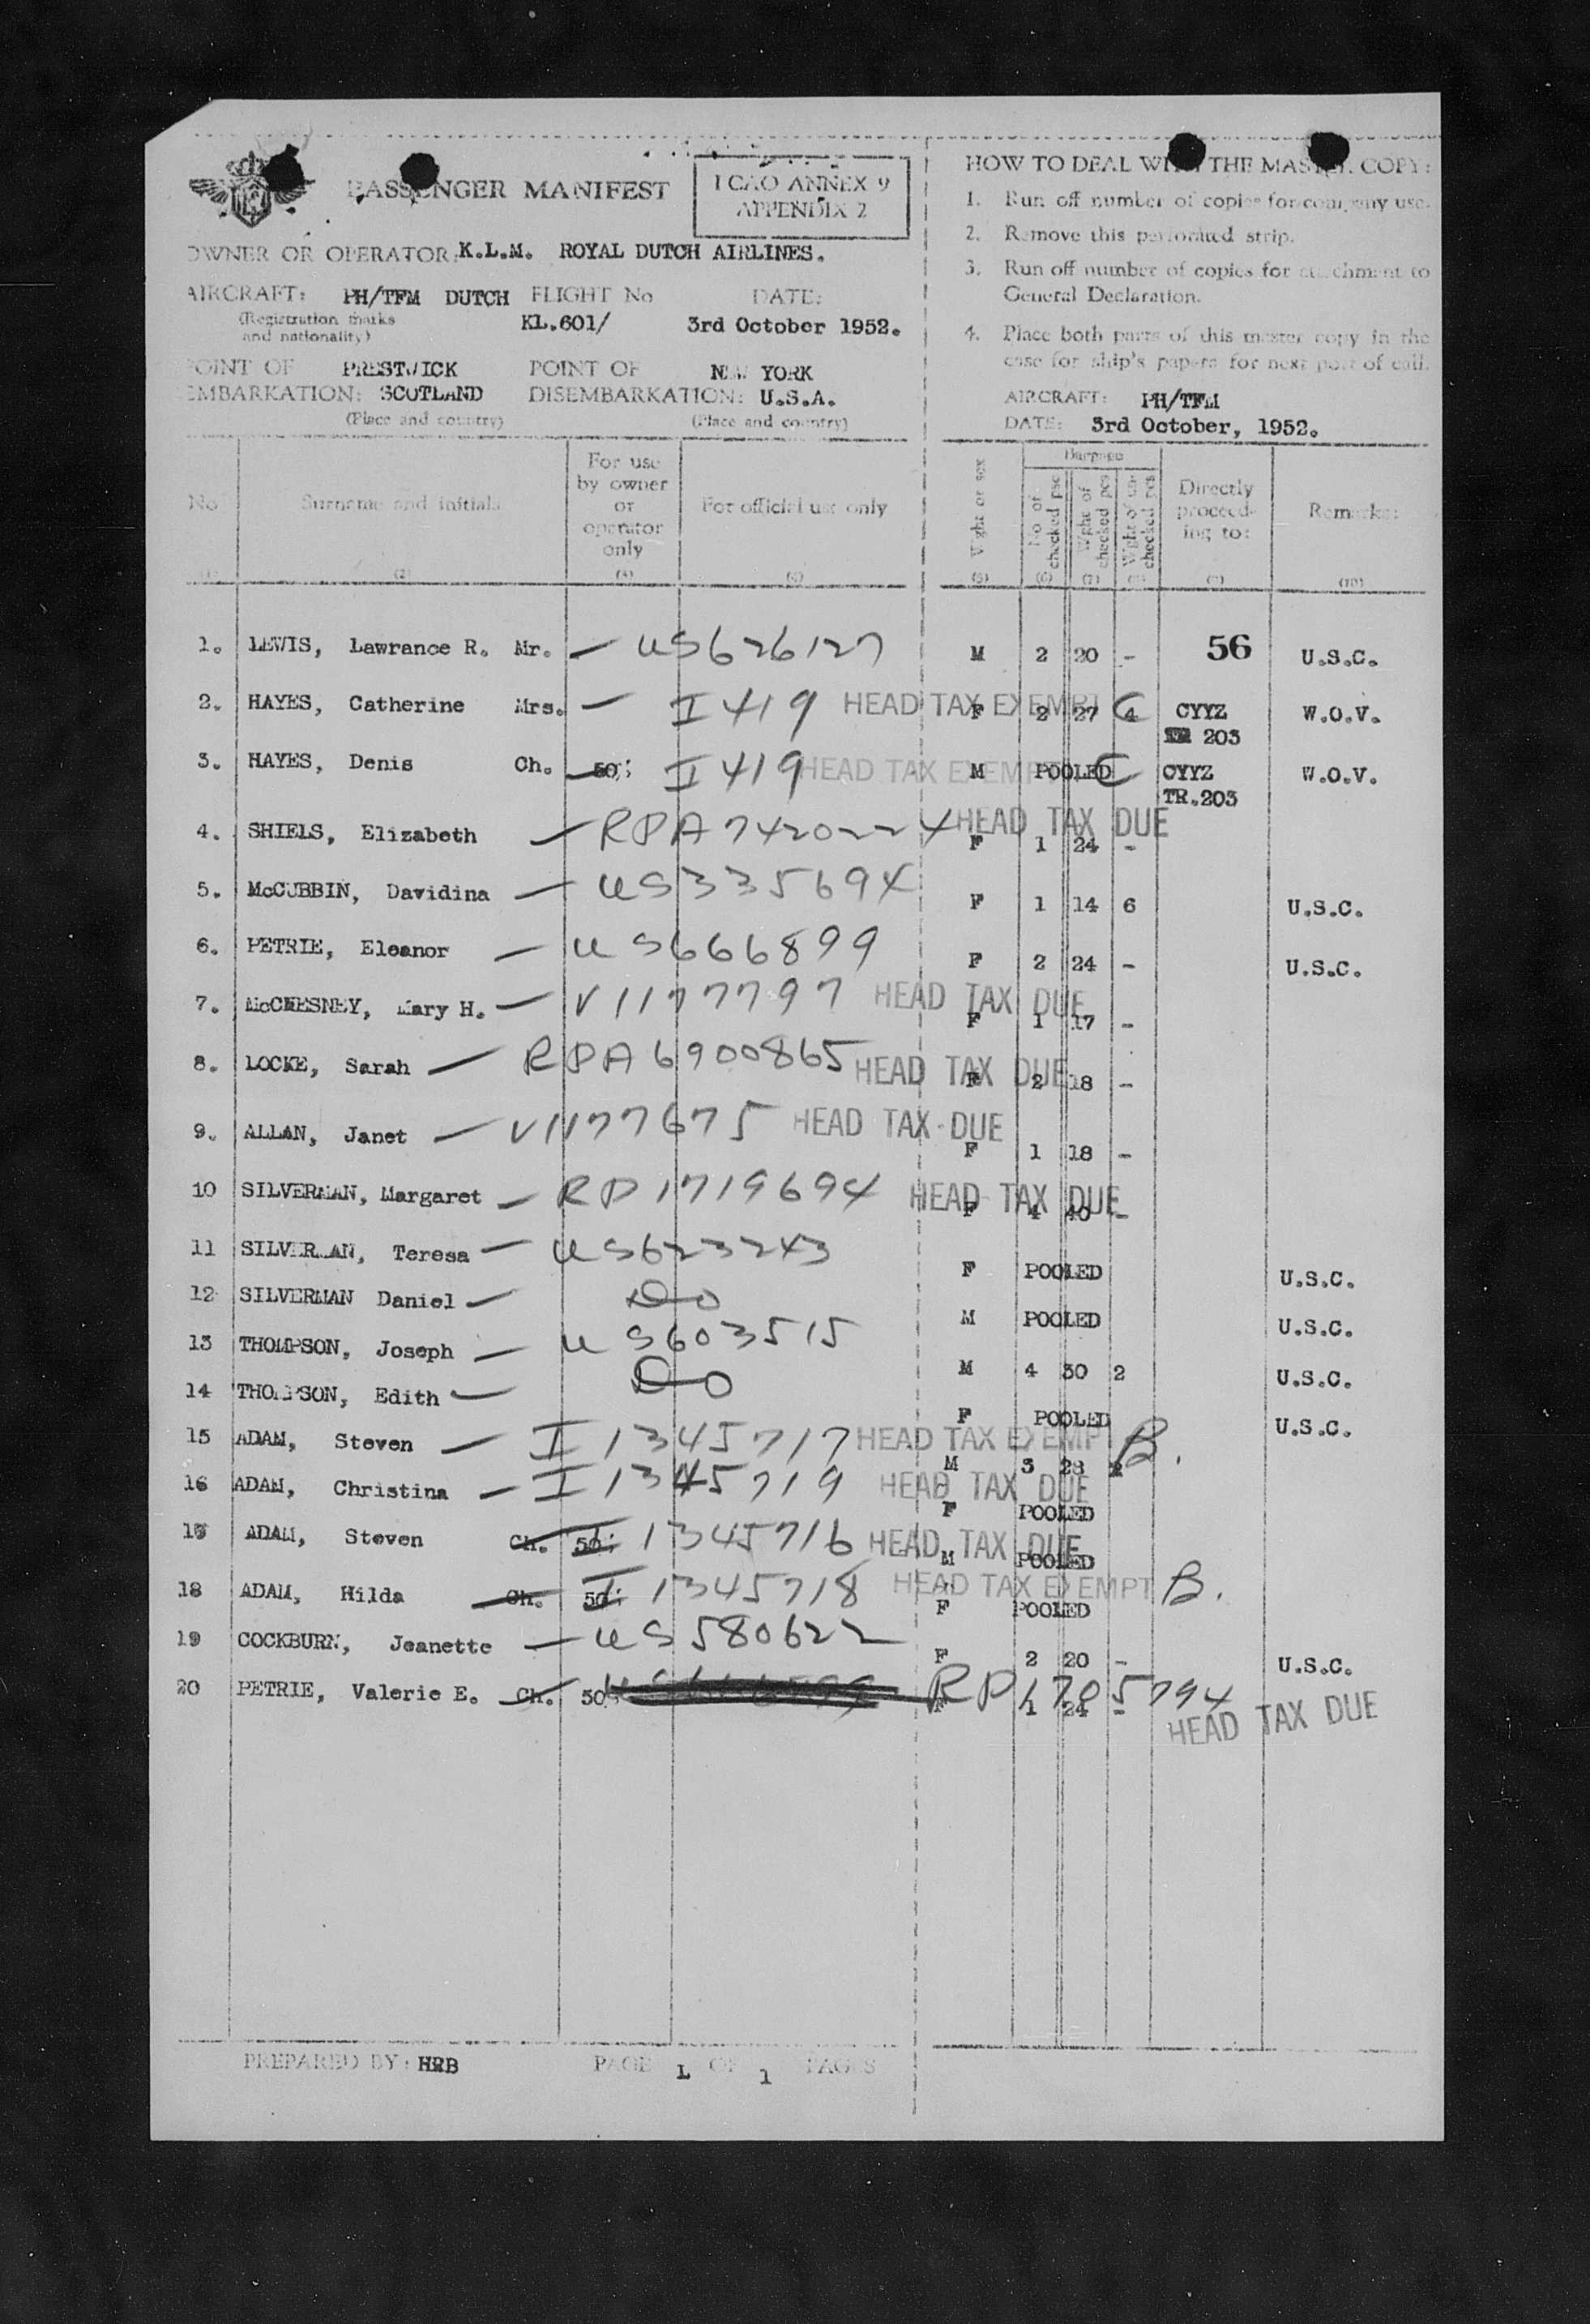 PASSENGER MANIFEST
ICAO ANNEX 9
APPENDIX 2
OWNER OR OPERATOR: K.L.M. ROYAL DUTCH AIRLINES.
AIRCRAFT: PH/TFM DUTCH FLIGHT No DATE:
(Registration marks and nationality) KL.601/ 3rd October 1952.
POINT OF PRESTWICK POINT OF NEW YORK
EMBARKATION: SCOTLAND DISEMBARKATION: U.S.A.
(Place and country) (Place and country)
HOW TO DEAL WITH THE MASTER COPY:
1. Run off number of copies for company use.
2. Remove this perforated strip.
3. Run off number of copies for attachment to
General Declaration.
4. Place both parts of this master copy in the
case for ship's papers for next port of call.
AIRCRAFT: PH/TFM
DATE: 3rd October, 1952.
No Surname and initials For use by owner or operator only For official use only Wght or sex Baggage No of checked pcs Wght of checked pcs Wght of unchecked pcs Directly proceeding to: Remarks:
(1) (2) (3) (4) (5) (6) (7) (8) (9) (10)
1. LEWIS, Lawrance R. Mr. — US626127 M 2 20 - 56 U.S.C.
2. HAYES, Catherine Mrs. — I 419 HEAD TAX EXEMPT C F 2 27 4 CYYZ W.O.V.
203
3. HAYES, Denis Ch. 50; I 419 HEAD TAX EXEMPT C M POOLED CYYZ W.O.V.
TR.203
4. SHIELS, Elizabeth — RPA7420224 HEAD TAX DUE F 1 24 -
5. McCUBBIN, Davidina — US335694 F 1 14 6 U.S.C.
6. PETRIE, Eleanor — US666899 F 2 24 - U.S.C.
7. McCHESNEY, Mary H. — V1177797 HEAD TAX DUE F 1 17 -
8. LOCKE, Sarah — RPA6900865 HEAD TAX DUE F 2 18 -
9. ALLAN, Janet — V1177675 HEAD TAX DUE F 1 18 -
10 SILVERMAN, Margaret — RP1719694 HEAD TAX DUE F 4 40 -
11 SILVERMAN, Teresa — US623243 F POOLED U.S.C.
12 SILVERMAN Daniel — Do M POOLED U.S.C.
13 THOMPSON, Joseph — US603515 M 4 30 2 U.S.C.
14 THOMPSON, Edith — Do F POOLED U.S.C.
15 ADAM, Steven — I 1345717 HEAD TAX EXEMPT B. M 3 28
16 ADAM, Christina — I 1345719 HEAD TAX DUE F POOLED
ADAM, Steven Ch. 50; 1345716 HEAD TAX DUE M POOLED
18 ADAM, Hilda Ch. 50; I 1345718 HEAD TAX EXEMPT B. F POOLED
19 COCKBURN, Jeanette — US580622 F 2 20 - U.S.C.
20 PETRIE, Valerie E. Ch. 50 RP1705794 F 1 24 -
HEAD TAX DUE
PREPARED BY: HRB PAGE 1 OF 1 PAGES